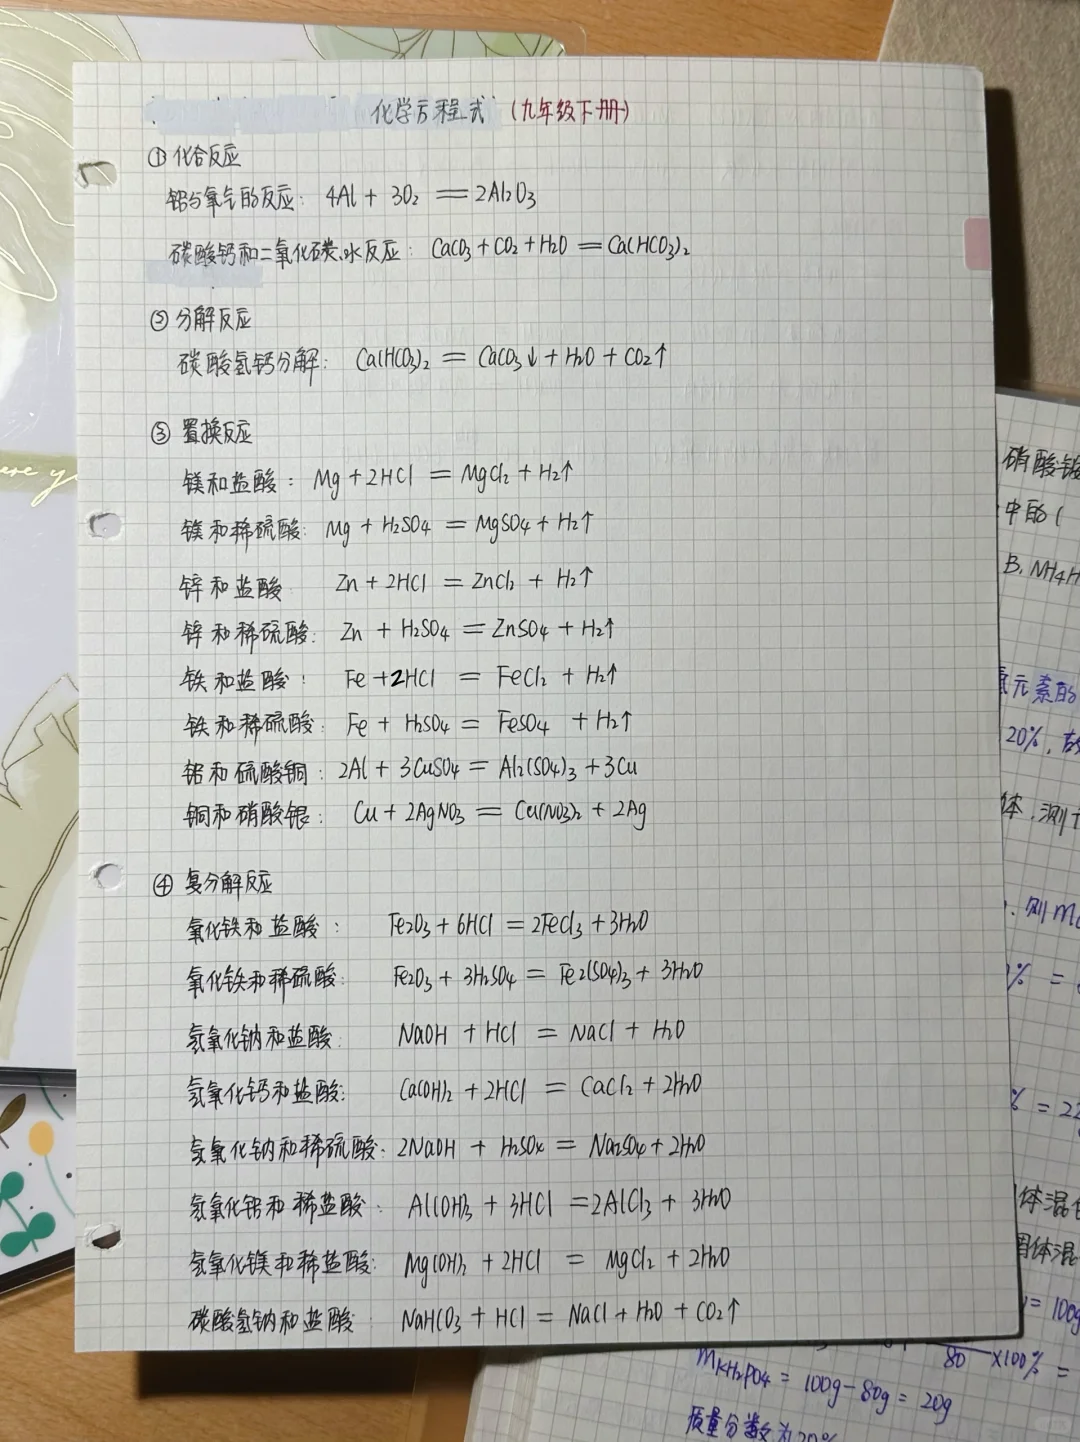 化学方程式 (九年级下册)
① 化合反应
铝与氧气的反应: 4Al + 3O₂ == 2Al₂O₃
碳酸钙和二氧化碳、水反应: CaCO₃ + CO₂ + H₂O == Ca(HCO₃)₂
② 分解反应
碳酸氢钙分解: Ca(HCO₃)₂ = CaCO₃↓ + H₂O + CO₂↑
③ 置换反应
镁和盐酸: Mg + 2HCl = MgCl₂ + H₂↑
镁和稀硫酸: Mg + H₂SO₄ = MgSO₄ + H₂↑
锌和盐酸 Zn + 2HCl = ZnCl₂ + H₂↑
锌和稀硫酸: Zn + H₂SO₄ = ZnSO₄ + H₂↑
铁和盐酸: Fe + 2HCl = FeCl₂ + H₂↑
铁和稀硫酸: Fe + H₂SO₄ = FeSO₄ + H₂↑
铝和硫酸铜: 2Al + 3CuSO₄ = Al₂(SO₄)₃ + 3Cu
铜和硝酸银: Cu + 2AgNO₃ = Cu(NO₃)₂ + 2Ag
④ 复分解反应
氧化铁和盐酸: Fe₂O₃ + 6HCl = 2FeCl₃ + 3H₂O
氧化铁和稀硫酸: Fe₂O₃ + 3H₂SO₄ = Fe₂(SO₄)₃ + 3H₂O
氢氧化钠和盐酸: NaOH + HCl = NaCl + H₂O
氢氧化钙和盐酸: Ca(OH)₂ + 2HCl = CaCl₂ + 2H₂O
氢氧化钠和稀硫酸: 2NaOH + H₂SO₄ = Na₂SO₄ + 2H₂O
氢氧化铝和稀盐酸: Al(OH)₃ + 3HCl = 2AlCl₃ + 3H₂O
氢氧化镁和稀盐酸: Mg(OH)₂ + 2HCl = MgCl₂ + 2H₂O
碳酸氢钠和盐酸 NaHCO₃ + HCl = NaCl + H₂O + CO₂↑
硝酸铵
中的(
B. NH₄H
元素的
20%,
体,测
则m
% =
% = 22
体混合
固体混
= 100g
80 ×100% =
mKH₂PO₄ = 100g - 80g = 20g
质量分数为20%